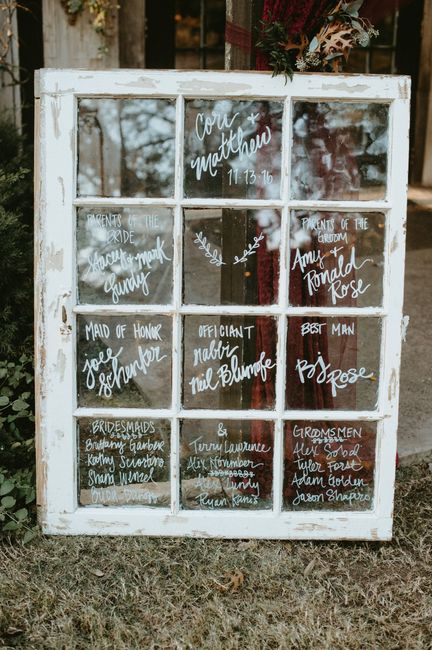 Cori +
Matthew
11·13·16
PARENTS OF THE
BRIDE
Stacey + Mark
Zundy
PARENTS OF THE
GROOM
Amy +
Ronald
Rose
MAID OF HONOR
OFFICIANT
Rabbi
Neil Blumofe
BEST MAN
BJ Rose
BRIDESMAIDS
Brittany Garber
Sharo Wenzel
&
Terry Lawrence
Alex November
Alex Zundy
Ryan
GROOMSMEN
Alex Sobol
Tyler Forst
Adam Golden
Jason Shapiro